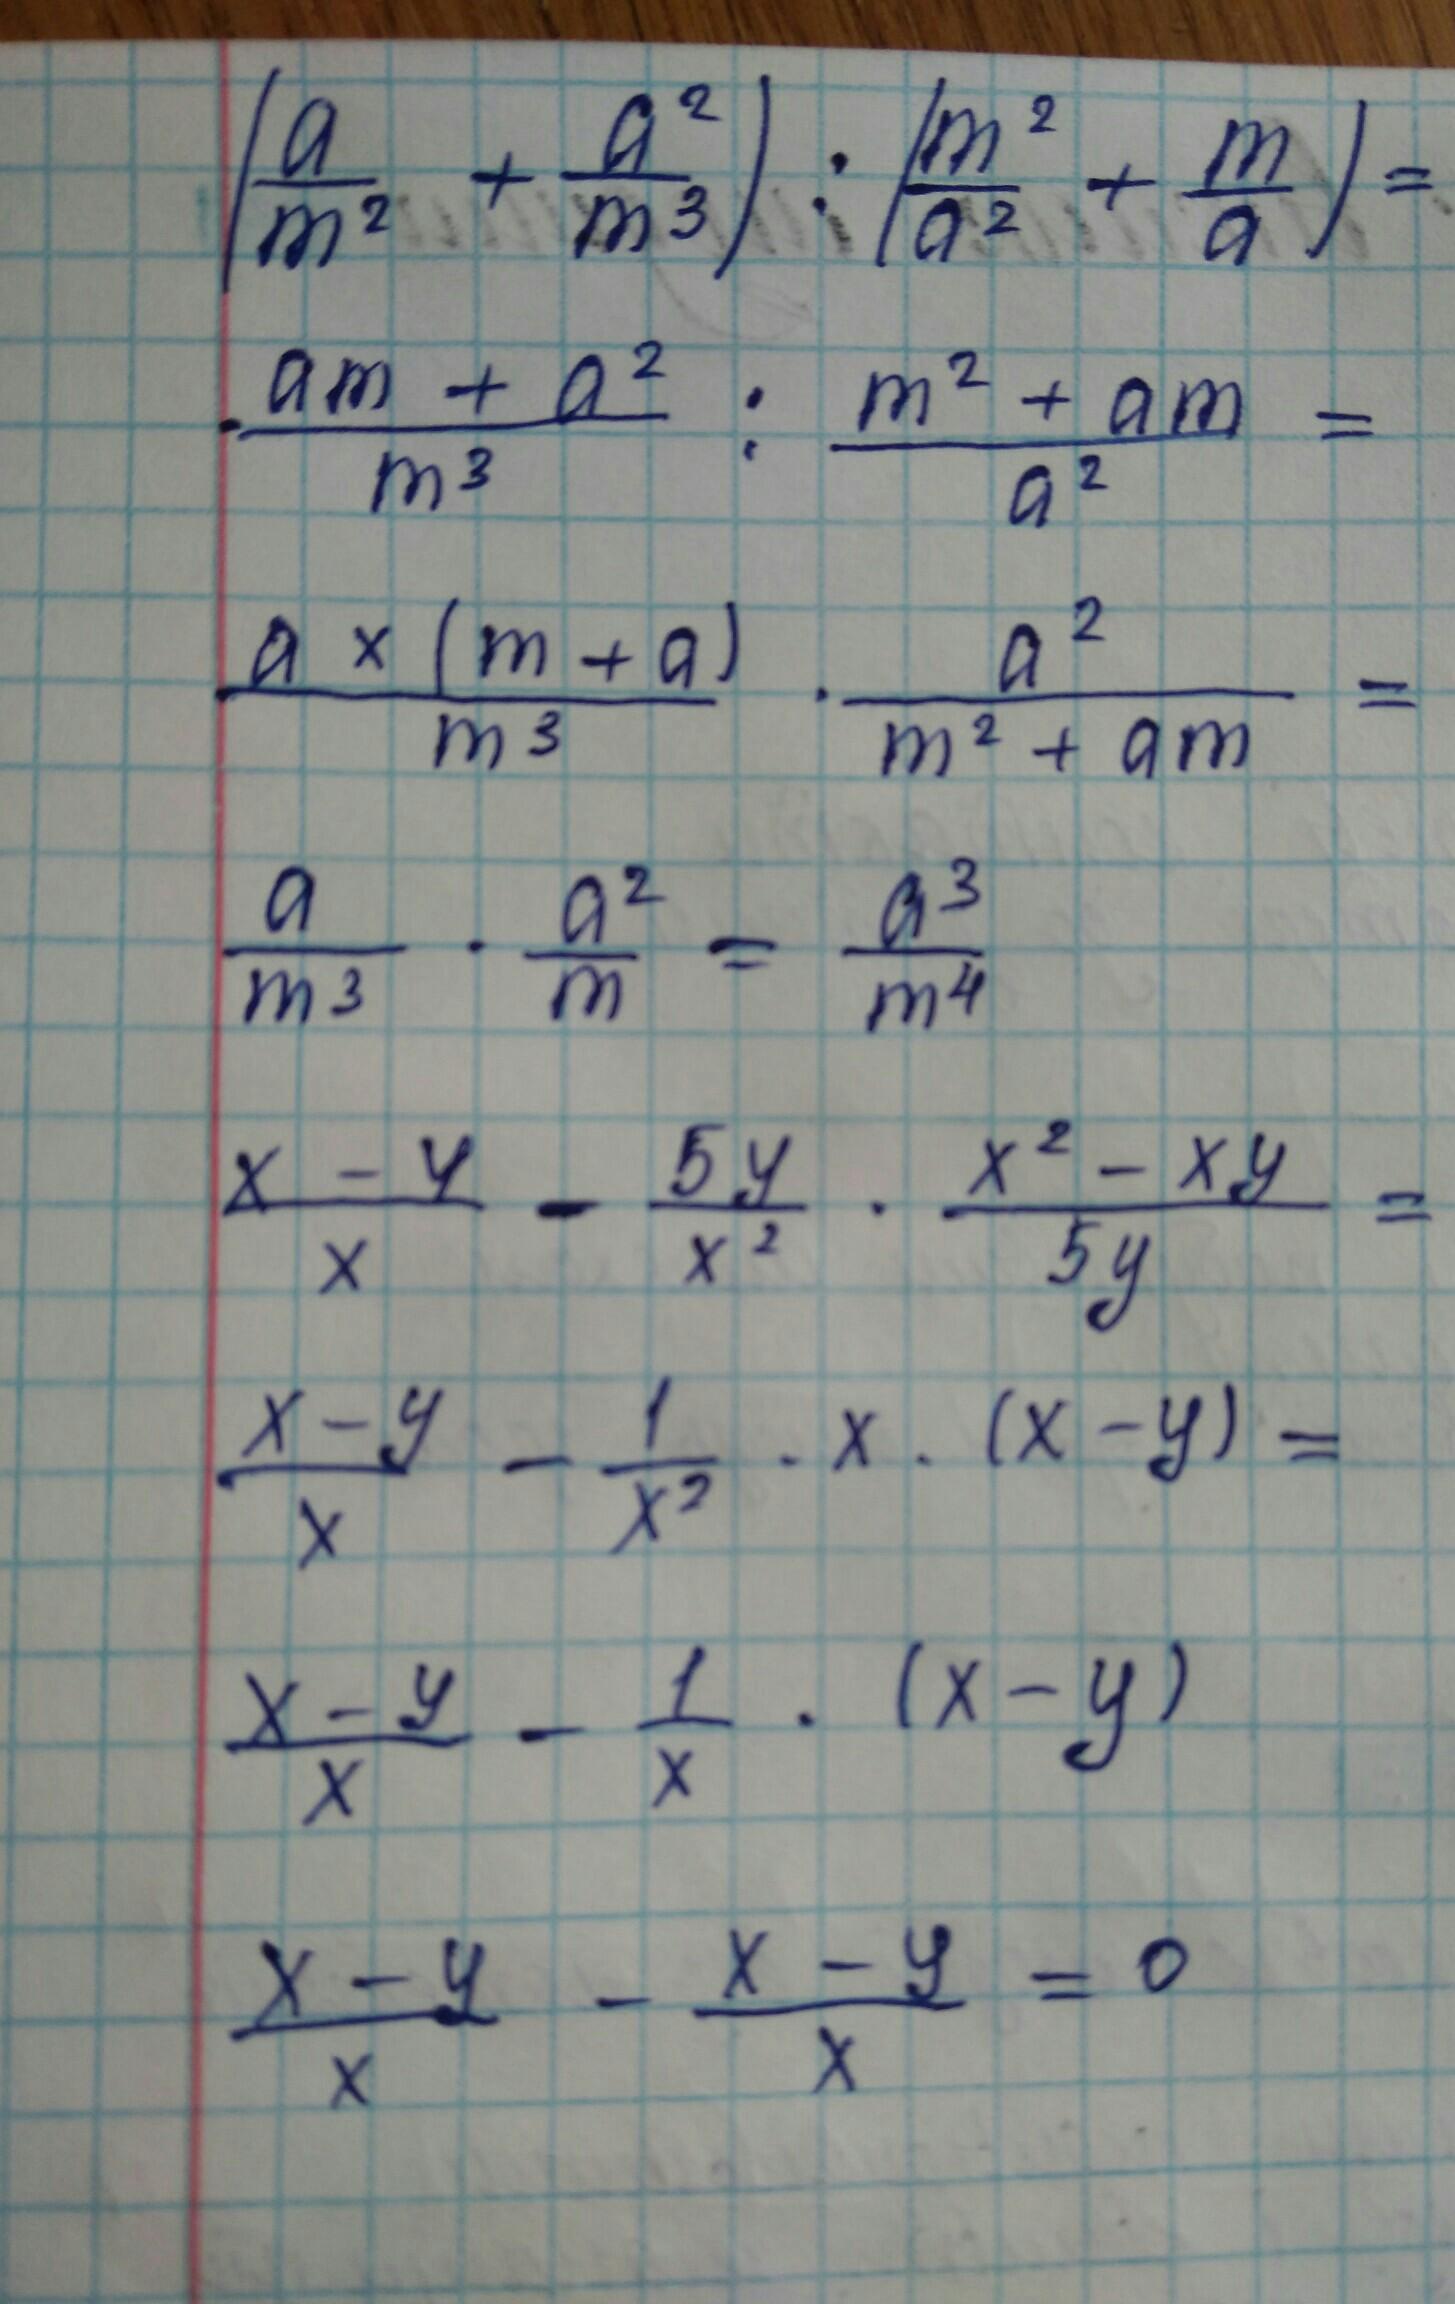 (a/m² + a²/m³) : (m²/a² + m/a) =
(am + a²)/m³ : (m² + am)/a² =
a × (m + a)/m³ · a²/(m² + am) =
a/m³ · a²/m = a³/m⁴
(x - y)/x - 5y/x² · (x² - xy)/5y =
(x - y)/x - 1/x² · x · (x - y) =
(x - y)/x - 1/x · (x - y)
(x - y)/x - (x - y)/x = 0